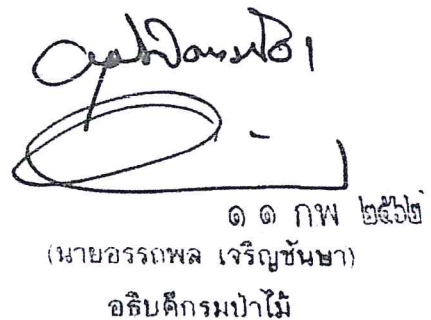 ๑ ๑ กพ ๒๕๖๒
(นายอรรถพล เจริญชันษา)
อธิบดีกรมป่าไม้